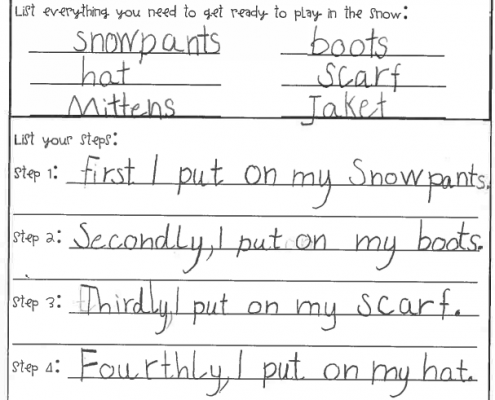 List everything you need to get ready to play in the snow:
snowpants boots
hat scarf
Mittens Jaket
List your steps:
Step 1: first I put on my Snowpants.
Step 2: Secondly, I put on my boots.
Step 3: Thirdly, I put on my scarf.
Step 4: Fourthly, I put on my hat.